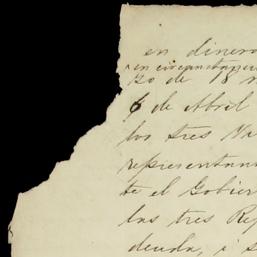 en dinero
en circunstanci
20 de 18
6 de Abril
los tres
representan
te el Gobier
las tres Rep
deuda, i s